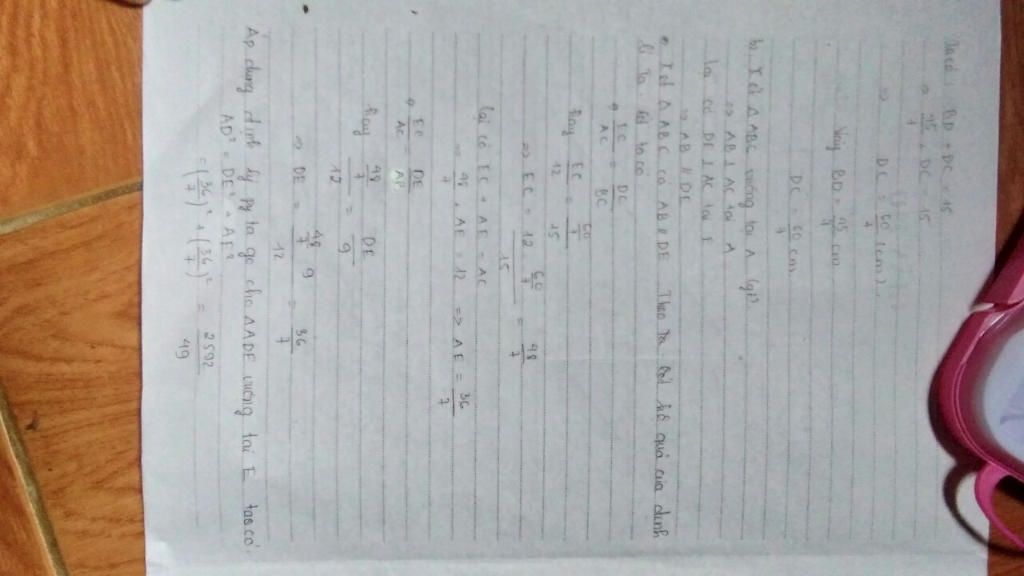 Ta có: BD + DC = 15
⇒ 45/7 + DC = 15
⇒ DC = 60/7 (cm).
Vậy BD = 45/7 cm
DC = 60/7 cm
b, Xét ΔABC vuông tại A (gt)
⇒ AB ⊥ AC tại A
lại có DE ⊥ AC tại E
⇒ AB // DE
* Xét ΔABC có AB // DE Theo hệ quả của định
lí Ta lét ta có
* EC/AC = DC/BC
Hay EC/12 = 60/7/15
⇒ EC = 12 . 60/7/15 = 48/7
lại có EC + AE = AC
⇒ 48/7 + AE = 12 => AE = 36/7
* EC/AC = DE/AB
Hay 48/7/12 = DE/9
⇒ DE = 48/7 . 9/12 = 36/7
Áp dụng định lý py ta go cho ΔADE vuông tại E ta có:
AD² = DE² + AE²
= (36/7)² + (36/7)² = 2592/49